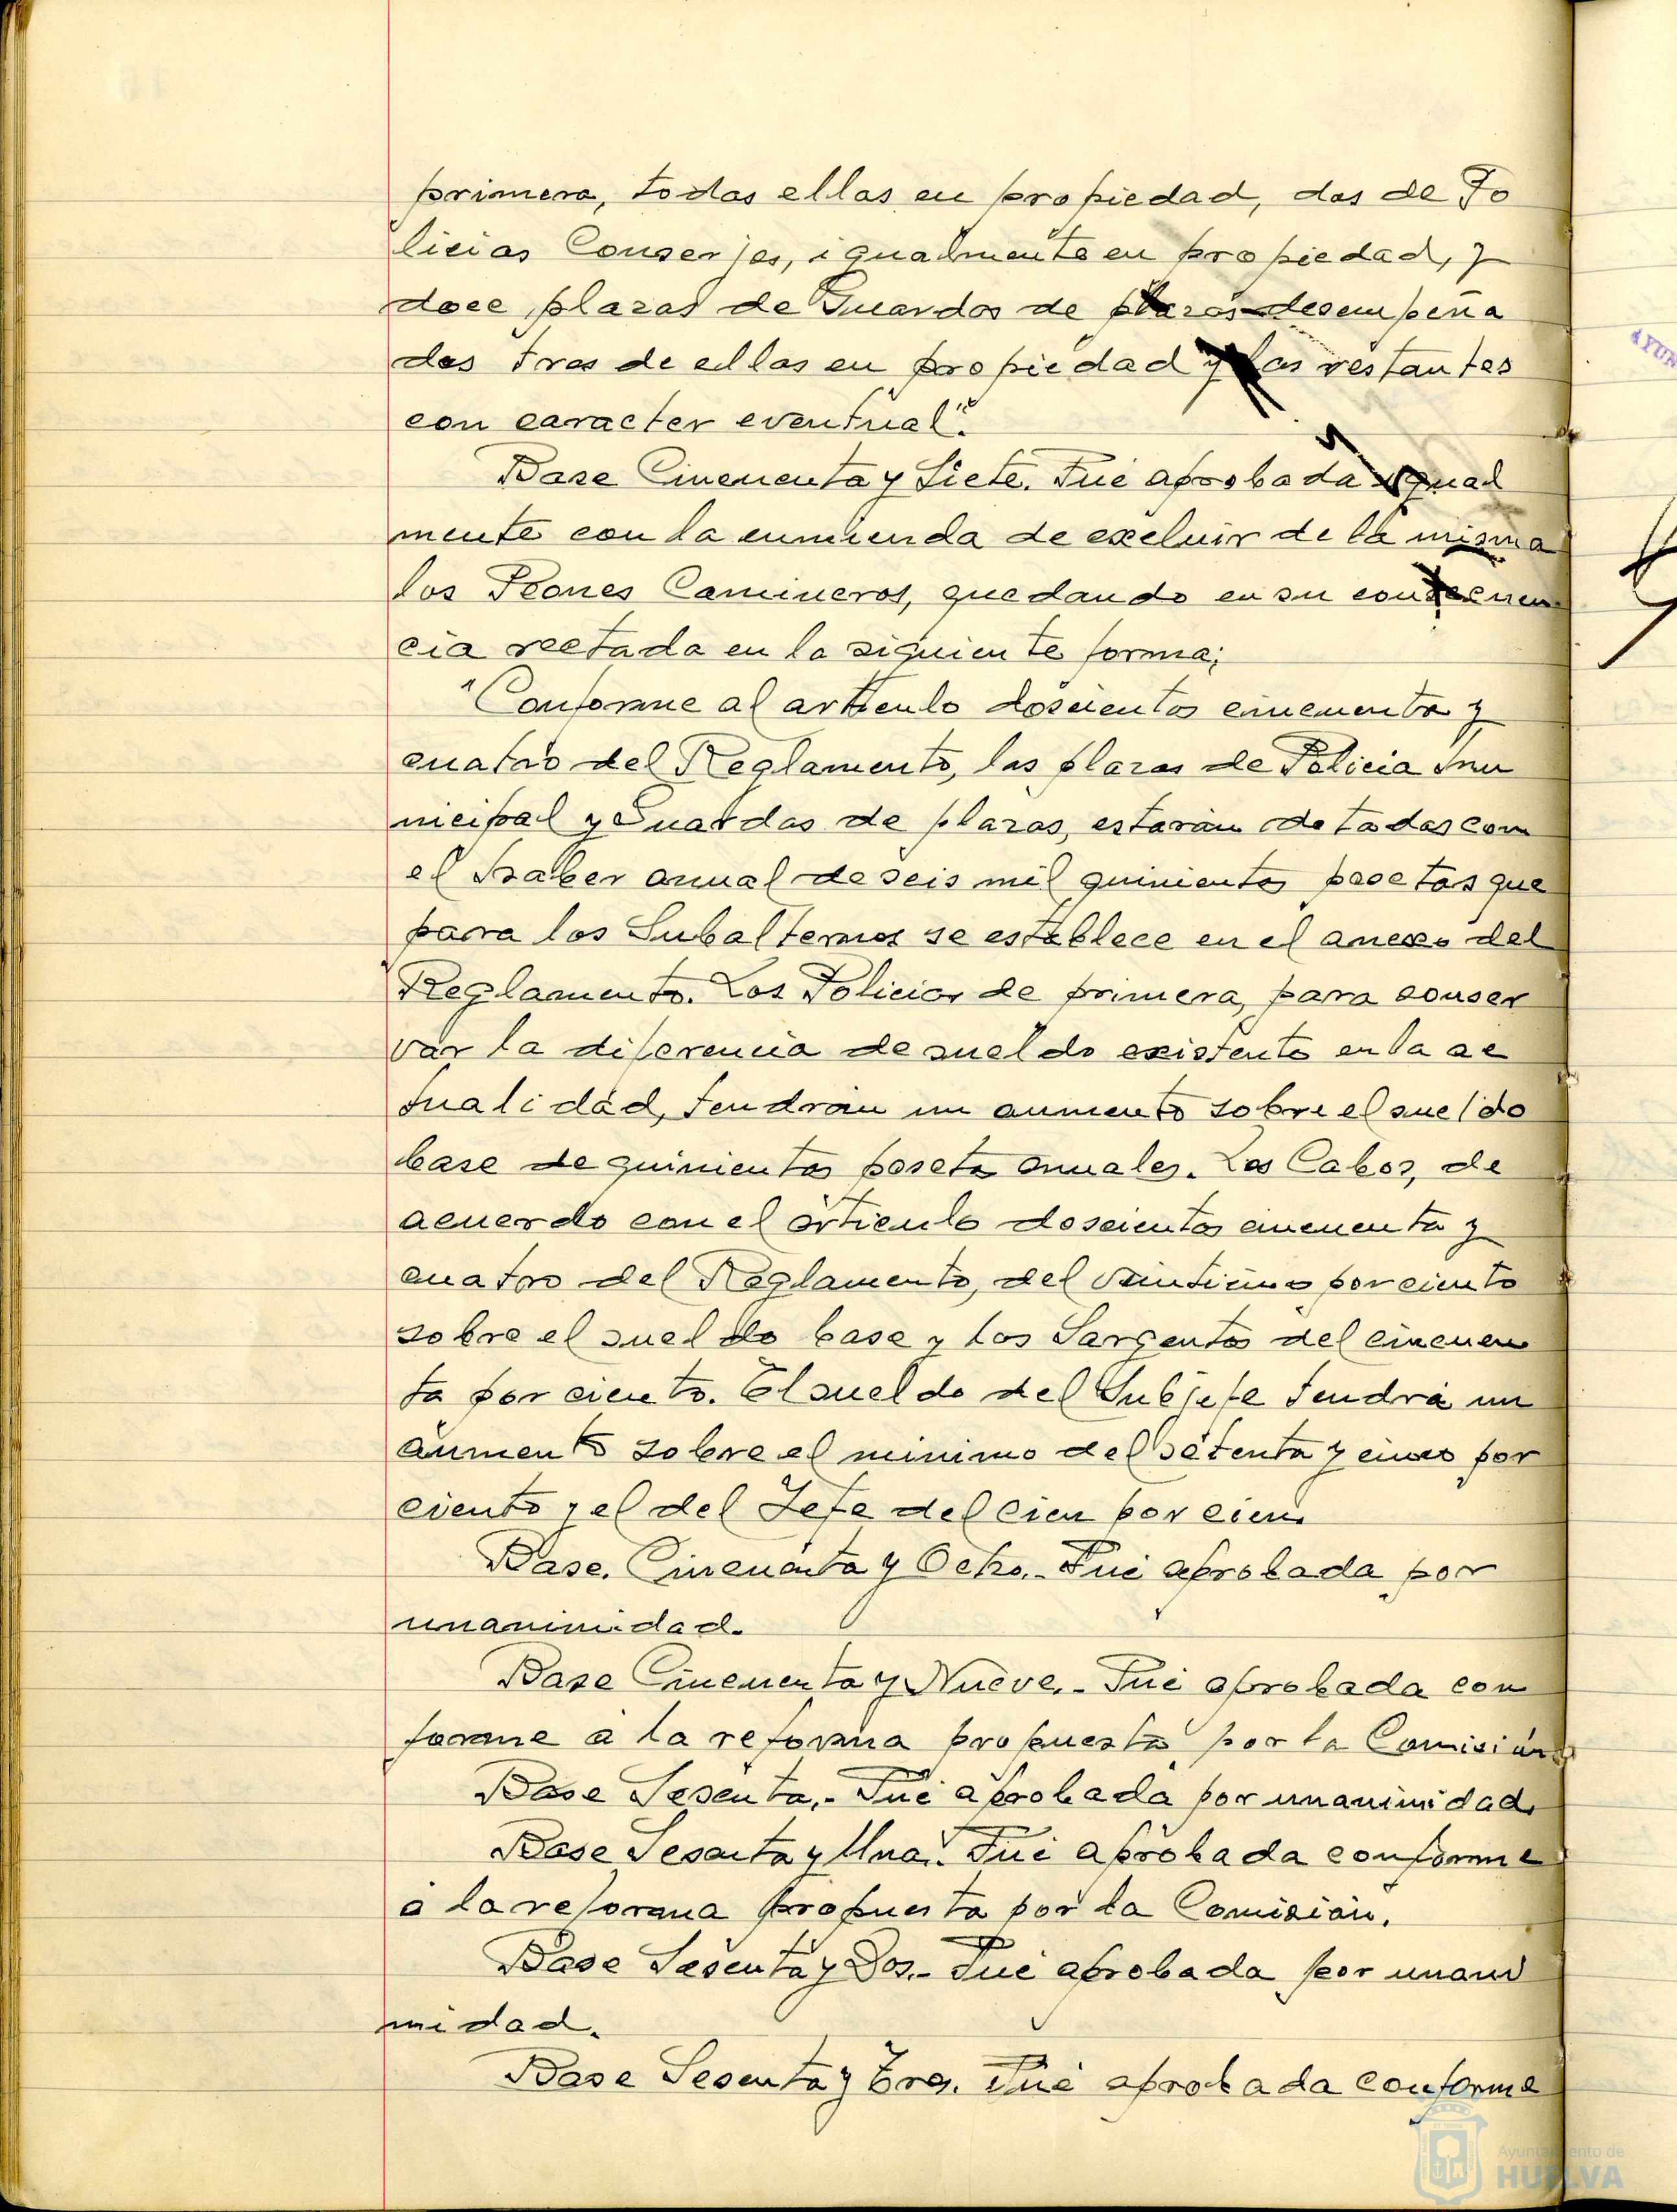 primera, todas ellas en propiedad, dos de Po
licias Conserjes, igualmente en propiedad, y
doce plazas de Guardas de plazas desempeña
das tres de ellas en propiedad y las restantes
con caracter eventual".
Base Cincuenta y Siete. Fué aprobada igual
mente con la enmienda de excluir de la misma
los Peones Camineros, quedando en su consecuen
cia rectada en la siguiente forma;
"Conforme al artículo doscientos cincuenta y
cuatro del Reglamento, las plazas de Policia Mu
nicipal y Guardas de plazas, estarán dotadas con
el haber anual de seis mil quinientas pesetas que
para los Subalternos se establece en el anexo del
Reglamento. Los Policias de primera, para conser
var la diferencia de sueldo existente en la ac
tualidad, tendrán un aumento sobre el sueldo
base de quinientas peseta anuales. Los Cabos, de
acuerdo con el artículo doscientos cincuenta y
cuatro del Reglamento, del por ciento
sobre el sueldo base y los Sargentos del cincuen
ta por ciento. El sueldo del Subjefe tendrá un
aumento sobre el mínimo del setenta y cinco por
ciento y el del Jefe del cien por cien.
Base. Cincuenta y Ocho.- Fué aprobada por
unanimidad.
Base Cincuenta y Nueve.- Fué aprobada con
forme a la reforma propuesta por la Comisión.
Base Sesenta.- Fué aprobada por unanimidad.
Base Sesenta y Una. Fué aprobada conforme
a la reforma propuesta por la Comisión.
Base Sesenta y Dos.- Fué aprobada por unani
midad.
Base Sesenta y Tres. Fué aprobada conforme
AYUN
Ayuntamiento de
HUELVA